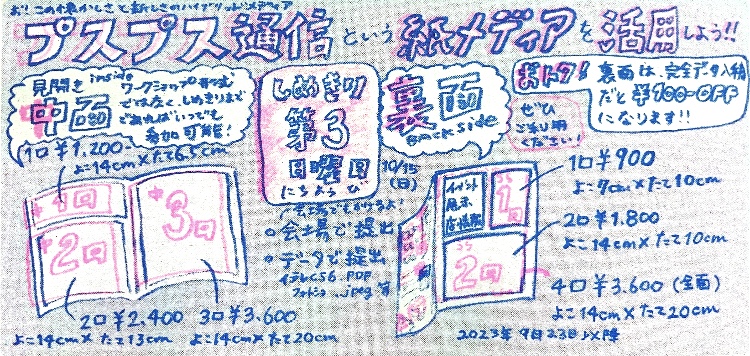 お！この懐かしさと新しさのハイブリッドメディア
プスプス通信という紙メディアを活用しよう!!
見開き inside
中面
ワークショップ形式
ではなく、しめきりまで
であればいつでも
参加可能！
しめきり
第3
日曜日
にちようび
10/15
(日)
裏面
Back side
おトク！
裏面は、完全データ入稿
だと¥100-OFF
になります!!
ぜひ
ご活用
ください！
1口¥1,200
よこ14cm×たて6.5cm
中1口
中2口
中3口
2口¥2,400
よこ14cm×たて13cm
3口¥3,600
よこ14cm×たて20cm
会場でもかけるよ！
○会場で提出
○データで提出
イラレCS6 PDF
フォトショ …jpeg 等
イベント
展示
店情報
うら1口
うら2口
1口¥900
よこ7cm×たて10cm
2口¥1,800
よこ14cm×たて10cm
4口¥3,600(全面)
よこ14cm×たて20cm
2023年9月23日以降